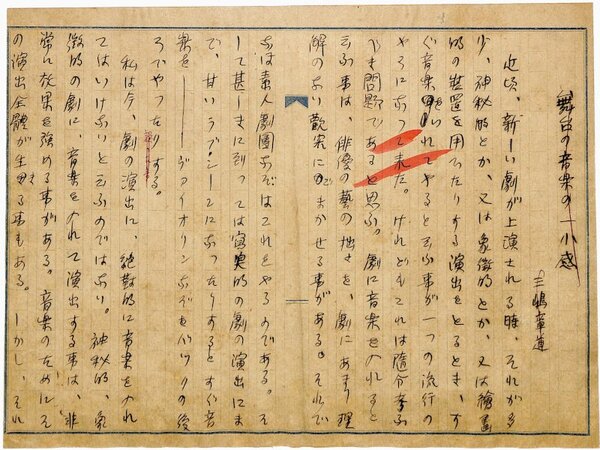 舞台の音楽の一小感
三嶋章道
近頃、新しい劇が上演される時、それが多
少、神秘的とか、又は象徴的とか、又は絵画
的の装置を用ゐたりする演出をとるとき、す
ぐ音楽をいれてやると云ふ事が一つの流行の
やうになつて来た。けれどもこれは随分考ふ
べき問題であると思ふ。劇に音楽を入れると
云ふ事は、俳優の藝の拙さを、劇にあまり理
解のない観客にごまかせる事がある。それで
なほ素人劇団などはこれをやるのである。そ
して甚しきに到つては写実的の劇の演出にま
で、甘いラブシーンになつたりするとすぐ音
楽を――ヴァイオリンなどをバックの後
ろでやつたりする。
私は今、劇の演出に、絶対的に音楽を入れ
てはいけないと云ふのではない。神秘的、象
徴的の劇に、音楽を入れて演出する事は、非
常に効果を強める事がある。音楽のためにそ
の演出全体が生きる事もある。しかし、それ